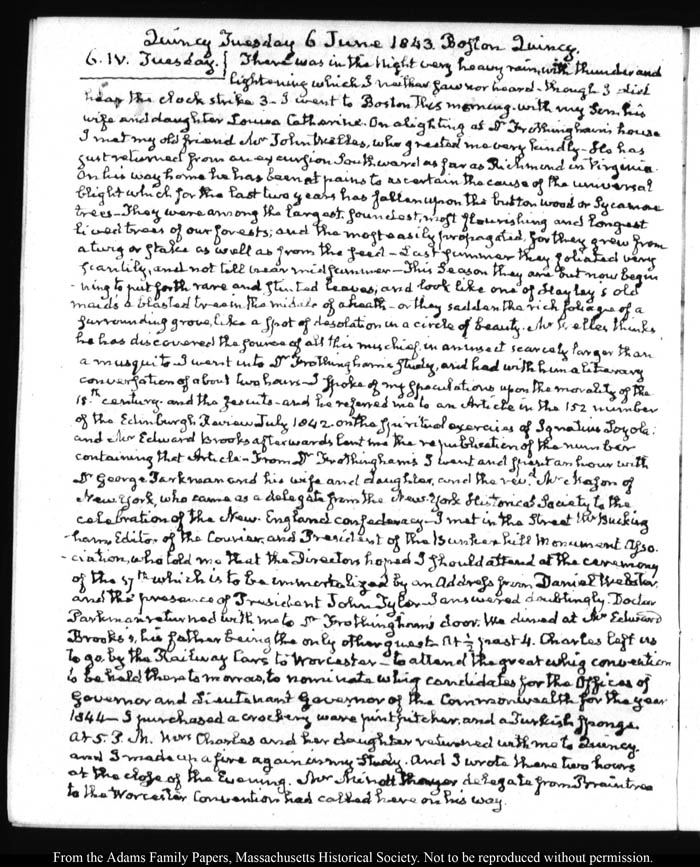 Quincy Tuesday 6 June 1843. Boston Quincy.
6. IV. Tuesday. { There was in the Night very heavy rain, with thunder and
lightening which I neither saw nor heard - though I did
hear the clock strike 3 - I went to Boston this morning with my Son, his
wife and daughter Louisa Catharine. On alighting at Dr Frothingham's house
I met my old friend Mr John Welles, who greeted me very kindly - He has
just returned from an excursion Southward as far as Richmond in Virginia.
On his way home he has been at pains to ascertain the cause of the universal
blight which for the last two years has fallen upon the button wood or Sycamore
trees - They were among the largest, soundest, most flourishing and longest
lived trees of our forests; and the most easily propagated, for they grew from
a twig or stake as well as from the seed - Last summer they foliated very
scantily, and not till near midsummer - This Season they are but now begin
-ning to put forth rare and stinted leaves, and look like one of Hayley's old
maids a blasted tree in the middle of a heath - or they sadden the rich foliage of a
surrounding grove, like a spot of desolation in a circle of beauty. Mr Welles thinks
he has discovered the source of all this mischief, in an insect scarcely larger than
a musquito - I went into Dr Frothingham's Study, and had with him a literary
conversation of about two hours - I spoke of my speculations upon the morality of the
18th century. and the Jesuits - and he referred me to an Article in the 152 number
of the Edinburgh Review July 1842. on the spiritual exercises of Ignatius Loyola:
and Mr Edward Brooks afterwards lent me the republication of the number
containing that Article - From Dr Frothingham's I went and spent an hour with
Dr George Parkman and his wife and daughter, and the revd. Mr Mason of
New York, who came as a delegate from the New-York Historical Society to the
celebration of the New. England confederacy - I met in the Street Mr Bucking
ham Editor of the Courier, and President of the Bunker hill Monument Asso.
-ciation, who told me that the Directors hoped I should attend at the ceremony
of the 17th which is to be immortalized by an Address from Daniel Webster,
and the presence of President John Tyler - I answered doubtingly. Doctor
Parkman returned with me to Dr Frothingham's door. We dined at Mr Edward
Brooks's, his father being the only other guest. At ½ past 4. Charles left us
to go by the Railway Cars to Worcester - to attend the great whig convention
to be held there to morrow, to nominate whig candidates for the Offices of
Governor and Lieutenant Governor of the Commonwealth for the year
1844 - I purchased a crockery ware pint pitcher, and a Turkish sponge.
At 5. P.M. Mrs Charles and her daughter returned with me to Quincy.
and I made up a fire again in my Study. And I wrote there two hours
at the close of the Evening. Mr Minott Thayer delegate from Braintree
to the Worcester Convention had called here on his way.
From the Adams Family Papers, Massachusetts Historical Society. Not to be reproduced without permission.